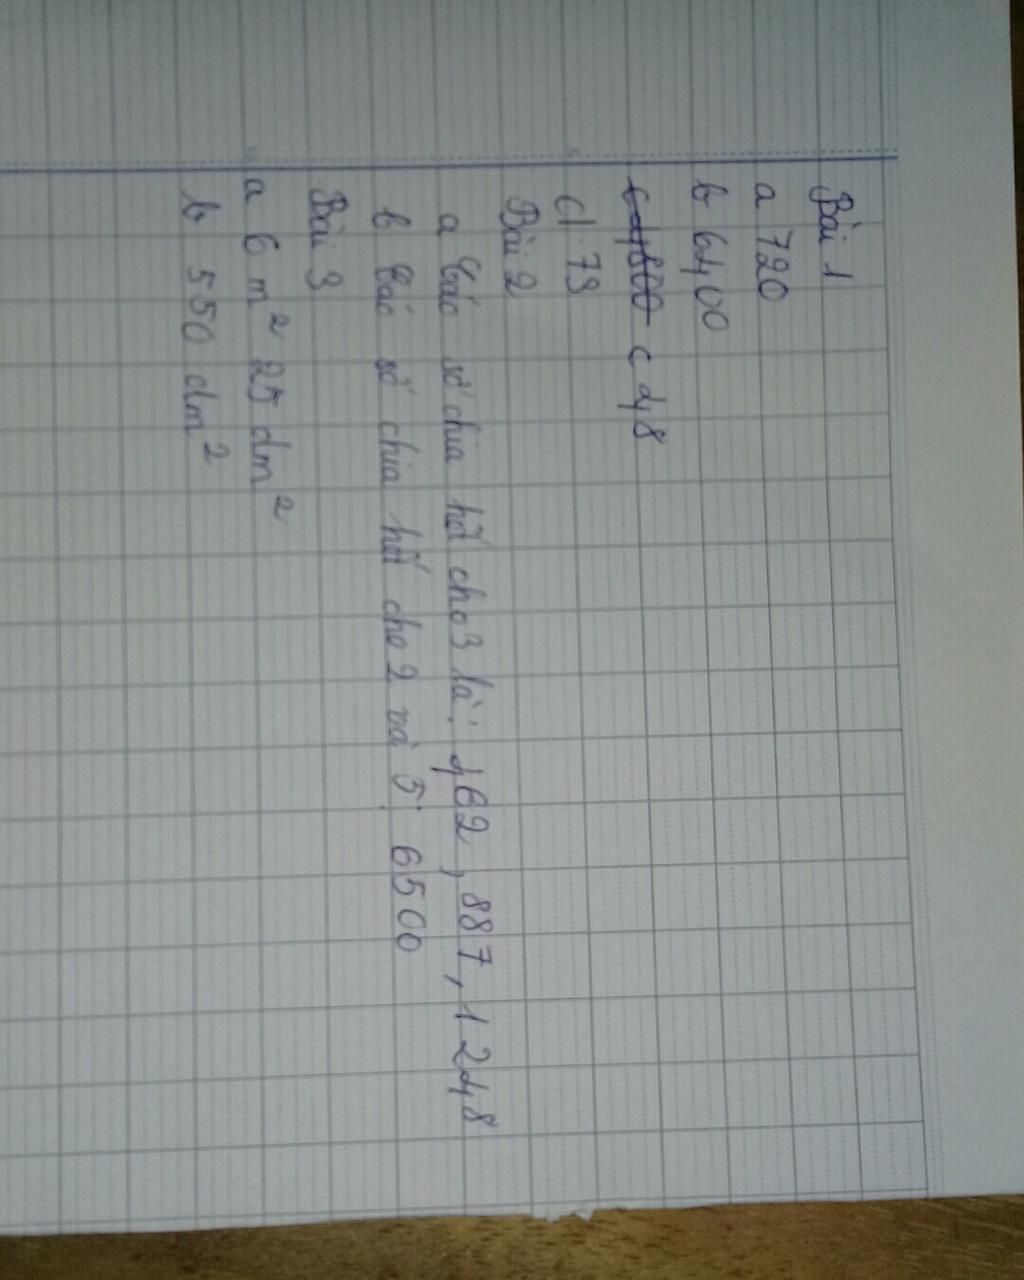 Bài 1
a 720
b 6400
c 4800 c 48
d 73
Bài 2
a Các số chia hết cho 3 là: 462, 887, 1248
b Các số chia hết cho 2 và 5: 6500
Bài 3
a 6 m² 25 dm²
b 550 dm²